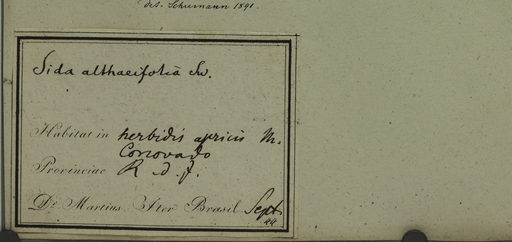 det. Schumann 1891.
Sida althaeifolia Sw.
Habitat in herbidis apricis M.
Corcovado
Provinciae R. d. J.
Dr. Martius Iter Brasil Sept.